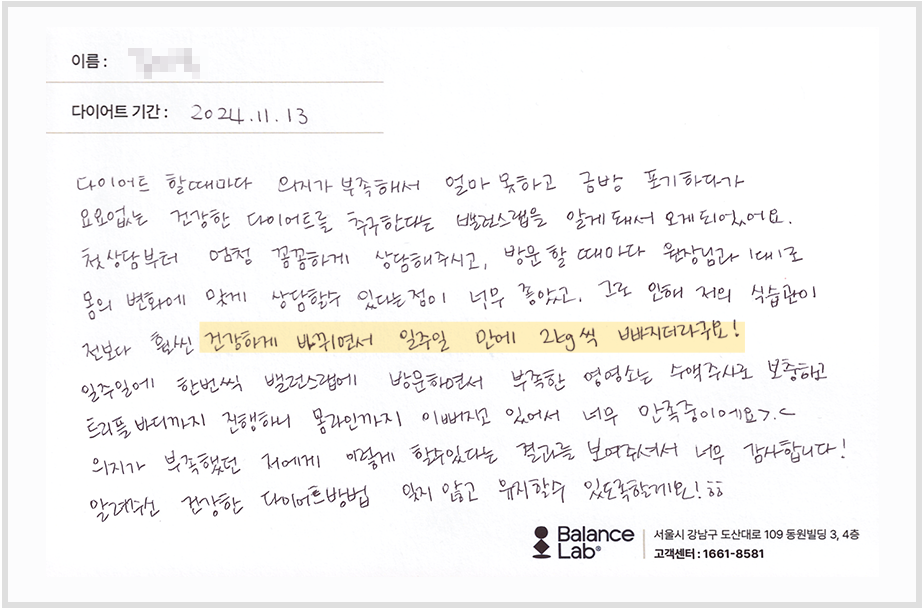 이름 :
다이어트 기간 : 2024.11.13
다이어트 할때마다 의지가 부족해서 얼마 못하고 금방 포기하다가
요요없는 건강한 다이어트를 추구한다는 밸런스랩을 알게돼서 오게되었어요.
첫상담부터 엄청 꼼꼼하게 상담해주시고, 방문할 때마다 원장님과 1대1로
몸의 변화에 맞게 상담할수 있다는점이 너무 좋았고, 그로 인해 저의 식습관이
전보다 훨씬 건강하게 바뀌면서 일주일 만에 2kg씩 빠지더라구요!
일주일에 한번씩 밸런스랩에 방문하면서 부족한 영양소는 수액주사로 보충하고
트리플바디까지 진행하니 몸라인까지 이뻐지고 있어서 너무 만족중이에요>.<
의지가 부족했던 저에게 이렇게 할수있다는 결과를 보여주셔서 너무 감사합니다!
알려주신 건강한 다이어트방법 잊지 않고 유지할수 있도록할게요!ㅎㅎ
Balance Lab® 서울시 강남구 도산대로 109 동원빌딩 3, 4층
고객센터 : 1661-8581